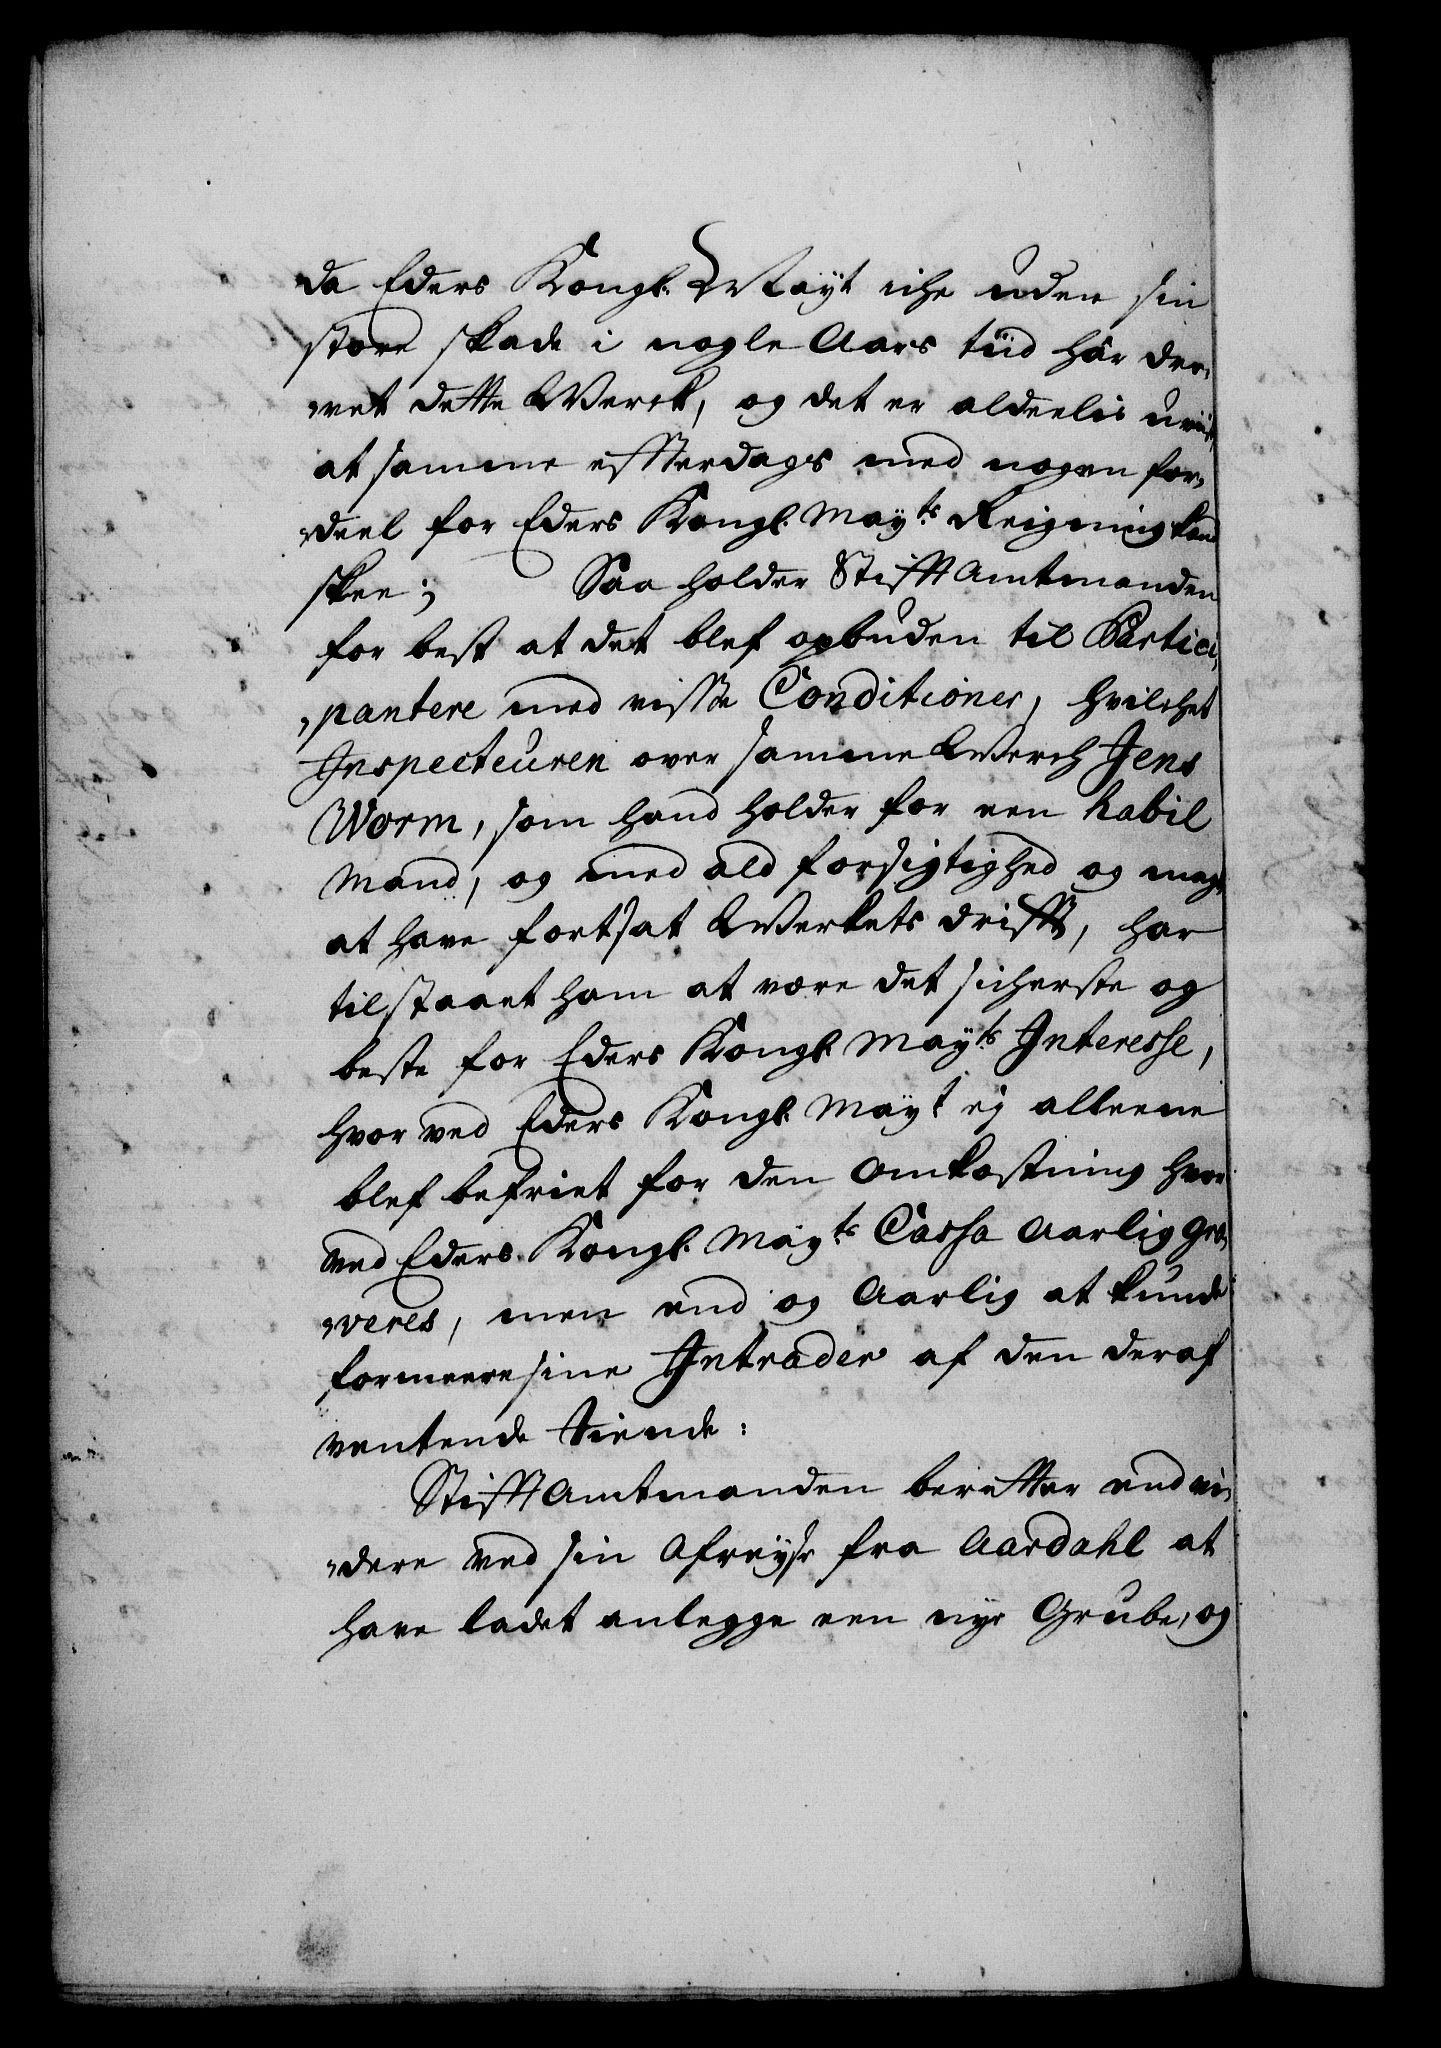 da Eders Kongl. Mayt iche uden sin
store skade i nogle Aars tiid hâr dre„
„vet dette Werck, og det er aldeelis uvist,
at samme effterdags med nogen for„
„deel for Eders Kongl. Mayts Reigning kand
skee; Saa holder StifftAmtmanden
for best at det blef opbuden til Partici„
„pantere med visse Conditioner, hvilchet
Inspecteuren over samme Werch Jens
Worm, som hand holder for een habil
Mand, og med ald forsigtighed og magt
at have fortsat Werkets drifft, har
tilstaaet ham at være det sicherste og
beste for Eders Kongl. Mayts Interesse,
hvor ved Eders Kongl. Mayt ej alleene
blef befriet for den Omkostning hvor
ved Eders Kongl. Mayts Cassa Aarlig gra„
„veres, men end og Aarlig at kunde
formeere sine Intrader af den deraf
ventende tiende:
StifftAmtmanden beretter end vi„
„dere ved sin Afreyse fra Aardahl at
have ladet anlegge een nye Grube, og